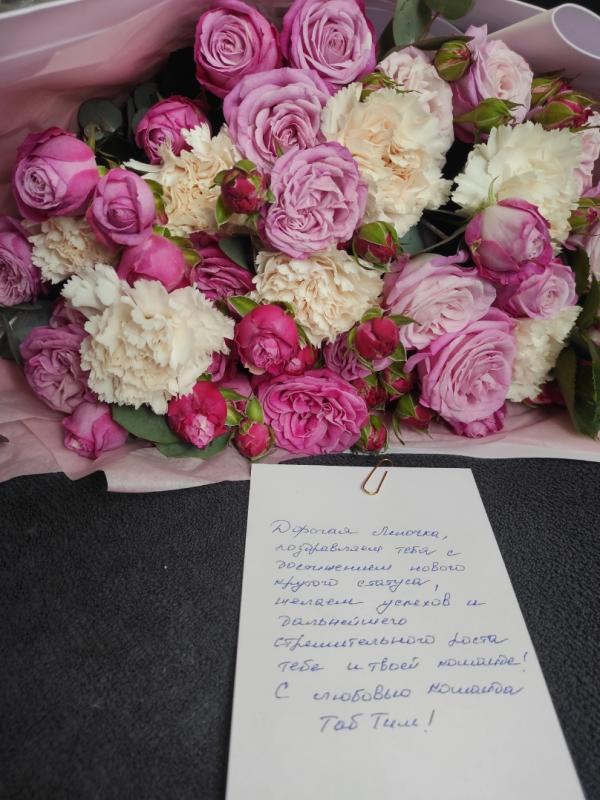 Дорогая Леночка,
поздравляем тебя с
достижением нового
крутого статуса,
желаем успехов и
дальнейшего
стремительного роста
тебе и твоей команде!
С любовью команда
Таб Тим!